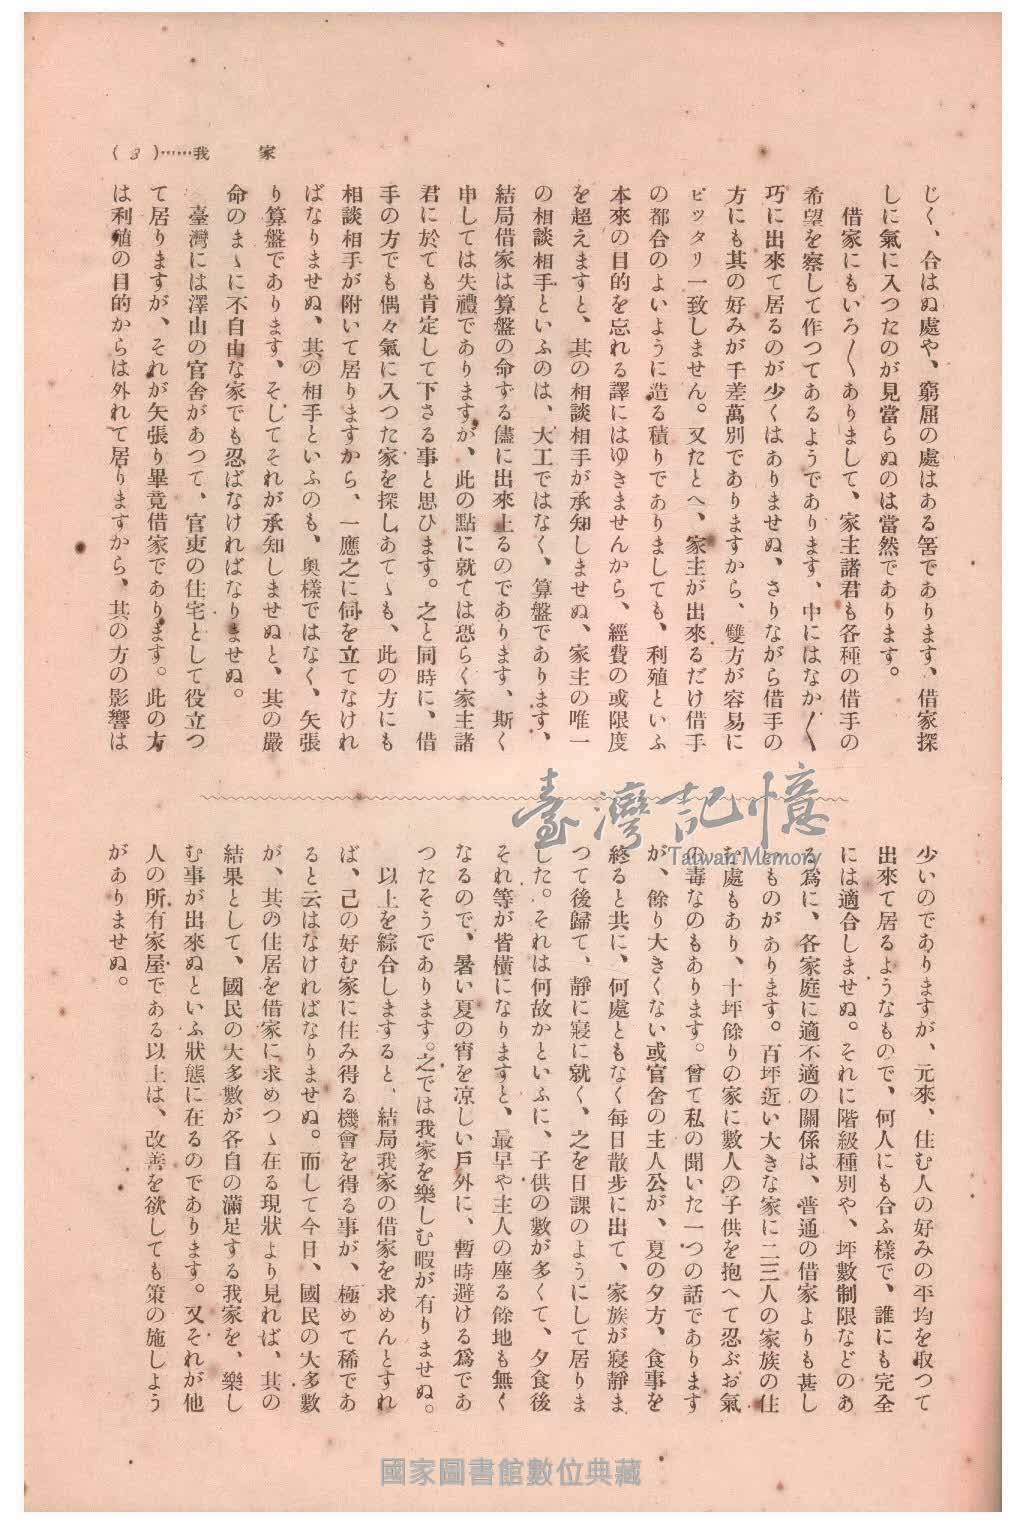 ( 3 )……我　　家
じく、合はぬ處や、窮屈の處はある筈であります、借家探
しに氣に入つたのが見當らぬのは當然であります。
借家にもいろ〳〵ありまして、家主諸君も各種の借手の
希望を察して作つてあるようであります、中にはなか〳〵
巧に出來て居るのが少くはありませぬ、さりながら借手の
方にも其の好みが千差萬別でありますから、雙方が容易に
ピツタリ一致しません。又たとへ、家主が出來るだけ借手
の都合のよいように造る積りでありましても、利殖といふ
本來の目的を忘れる譯にはゆきませんから、經費の或限度
を超えますと、其の相談相手が承知しませぬ、家主の唯一
の相談相手といふのは、大工ではなく、算盤であります、
結局借家は算盤の命ずる儘に出來上るのであります、斯く
申しては失禮でありますが、此の點に就ては恐らく家主諸
君に於ても肯定して下さる事と思ひます。之と同時に、借
手の方でも偶々氣に入つた家を探しあてゝも、此の方にも
相談相手が附いて居りますから、一應之に伺を立てなけれ
ばなりませぬ、其の相手といふのも、奧樣ではなく、矢張
り算盤であります、そしてそれが承知しませぬと、其の嚴
命のまゝに不自由な家でも忍ばなければなりませぬ。
臺灣には澤山の官舍があつて、官吏の住宅として役立つ
て居りますが、それが矢張り畢竟借家であります。此の方
は利殖の目的からは外れて居りますから、其の方の影響は
少いのでありますが、元來、住む人の好みの平均を取つて
出來て居るようなもので、何人にも合ふ樣で、誰にも完全
には適合しませぬ。それに階級種別や、坪數制限などのあ
る爲に、各家庭に適不適の關係は、普通の借家よりも甚し
いものがあります。百坪近い大きな家に二三人の家族の住
む處もあり、十坪餘りの家に數人の子供を抱へて忍ぶお氣
の毒なのもあります。曾て私の聞いた一つの話であります
が、餘り大きくない或官舍の主人公が、夏の夕方、食事を
終ると共に、何處ともなく每日散步に出て、家族が寢靜ま
つて後歸て、靜に寢に就く、之を日課のようにして居りま
した。それは何故かといふに、子供の數が多くて、夕食後
それ等が皆橫になりますと、最早や主人の座る餘地も無く
なるので、暑い夏の宵を凉しい戶外に、暫時避ける爲であ
つたそうであります。之では我家を樂しむ暇が有りませぬ。
以上を綜合しますると、結局我家の借家を求めんとすれ
ば、己の好む家に住み得る機會を得る事が、極めて稀であ
ると云はなければなりませぬ。而して今日、國民の大多數
が、其の住居を借家に求めつゝ在る現狀より見れば、其の
結果として、國民の大多數が各自の滿足する我家を、樂し
む事が出來ぬといふ狀態に在るのであります。又それが他
人の所有家屋である以上は、改善を欲しても策の施しよう
がありませぬ。
臺灣記憶
Taiwan Memory
國家圖書館數位典藏